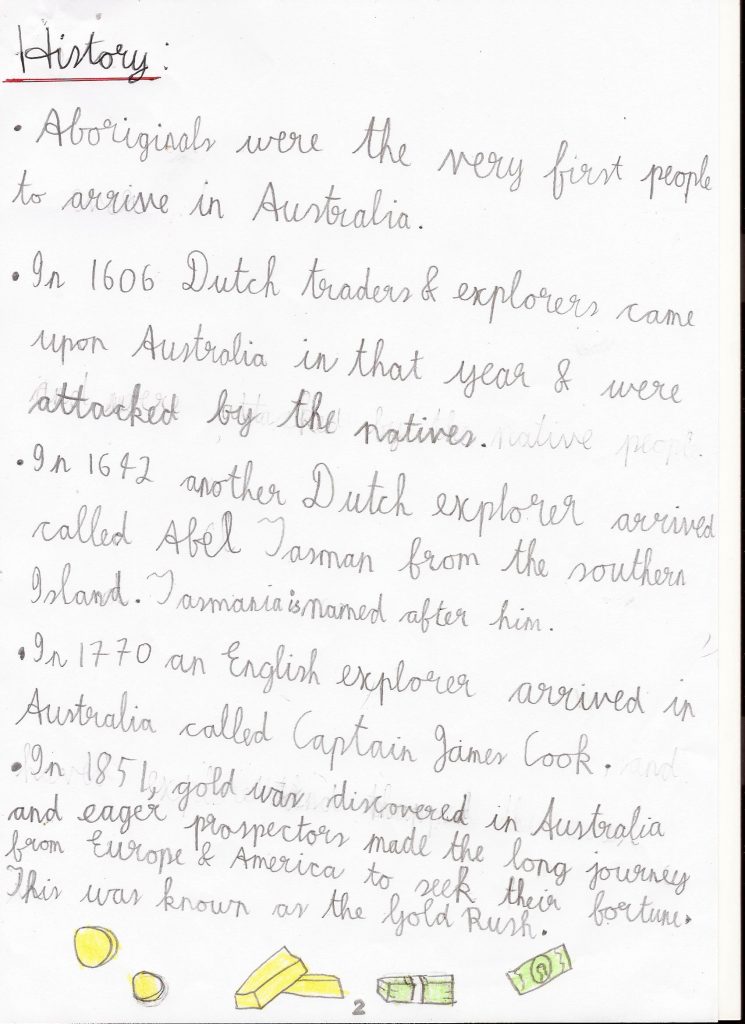 History:
• Aboriginals were the very first people
to arrive in Australia.
• In 1606 Dutch traders & explorers came
upon Australia in that year & were
attacked by the natives. native people.
• In 1642 another Dutch explorer arrived
called Abel Tasman from the southern
Island. Tasmania is named after him.
• In 1770 an English explorer arrived in
Australia called Captain James Cook.
• In 1851, gold was discovered in Australia
and eager prospectors made the long journey
from Europe & America to seek their fortune.
This was known as the Gold Rush.
2